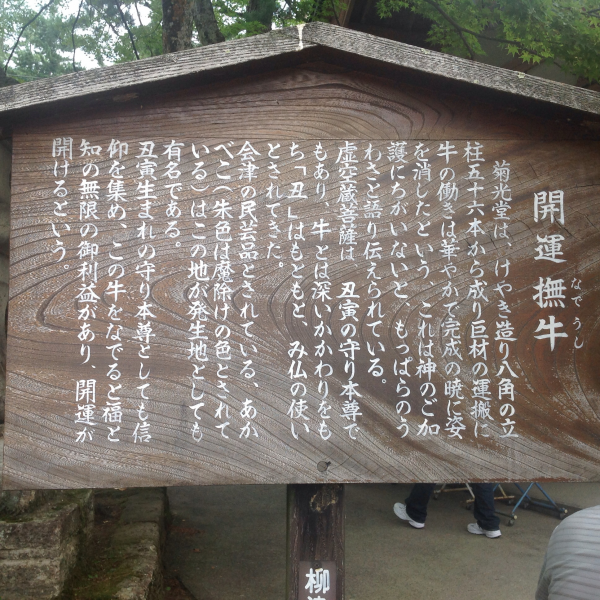 開運撫牛
なでうし
菊光堂は、けやき造り八角の立
柱五十六本から成り巨材の運搬に
牛の働きは華やかで完成の暁に姿
を消したという、これは神のご加
護にちがいないと もっぱらのう
わさと語り伝えられている。
虚空蔵菩薩は 丑寅の守り本尊で
もあり、牛とは深いかかわりをも
ち「丑」はもともと、み仏の使い
とされてきた。
会津の民芸品とされている、あか
べこ(朱色は魔除けの色とされて
いる)はこの地が発生地としても
有名である。
丑寅生まれの守り本尊としても信
仰を集め、この牛をなでると福と
知の無限の御利益があり、開運が
開けるという。
柳